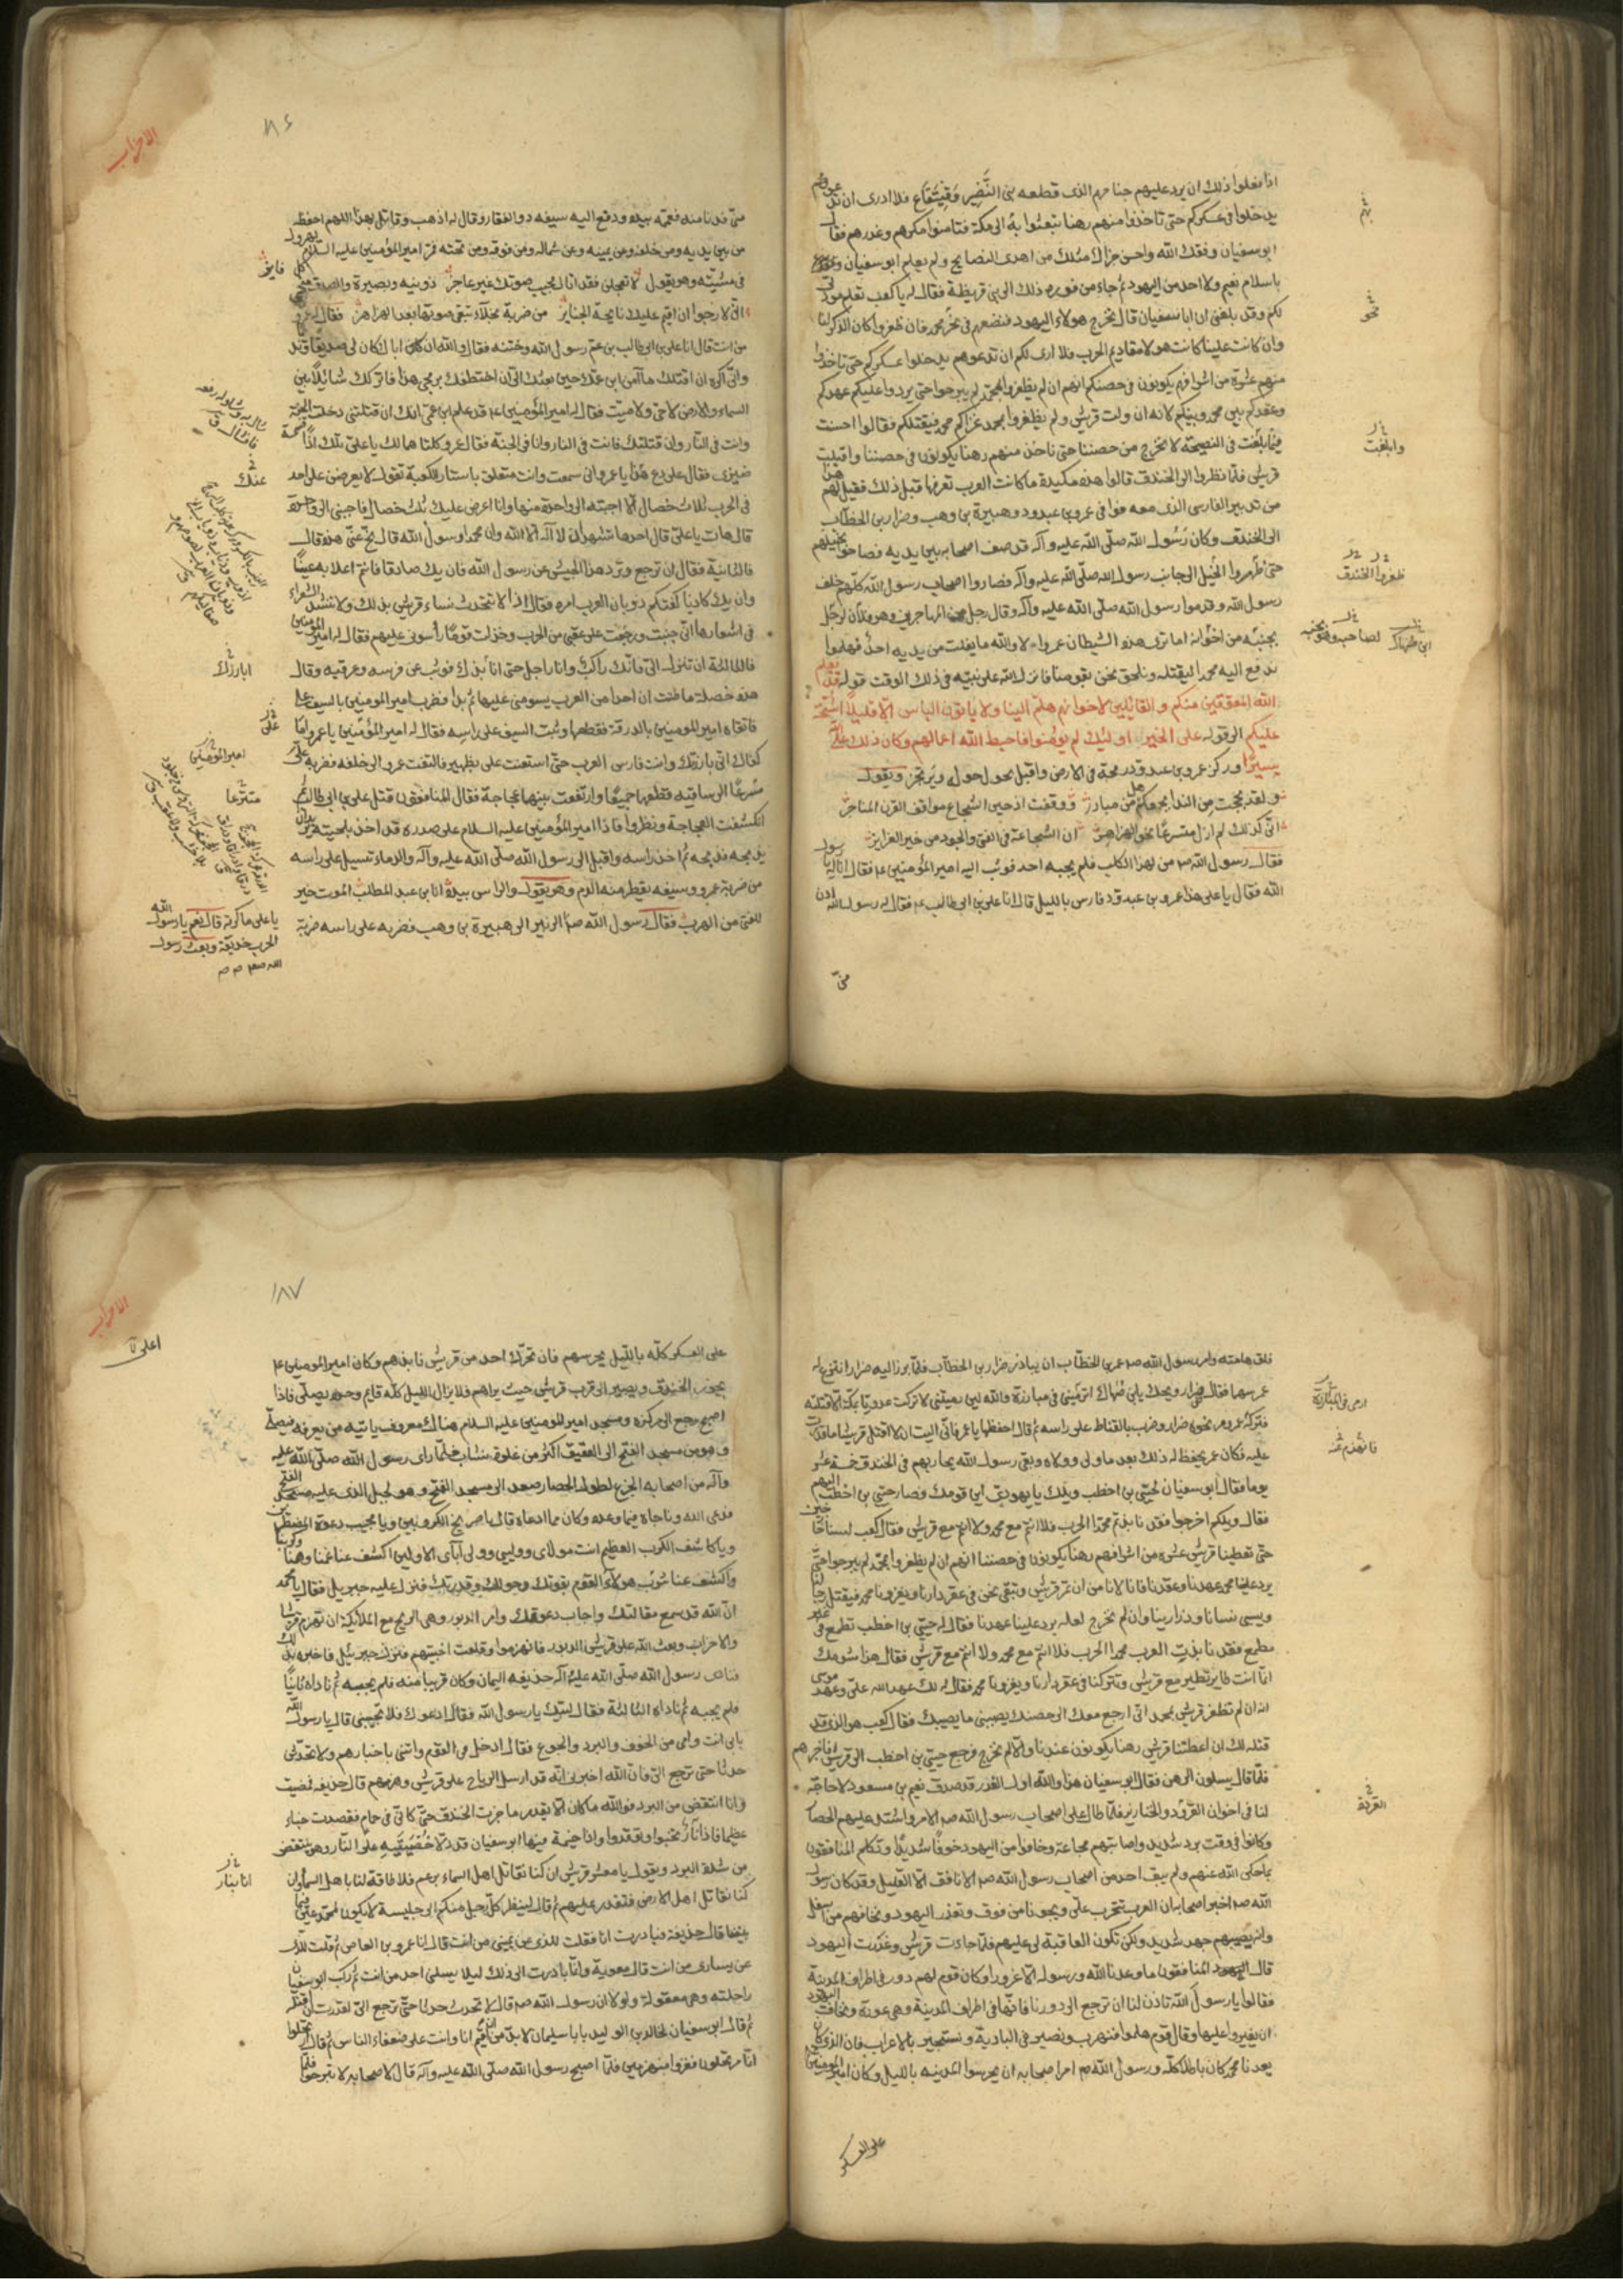 اذا فعلوا ذلك ان يرد عليهم جناحهم الذى قطعه بنى النَّضِير وَقينُقَاع فلا ادرى ان
يدخلوا فى عسكركم حتى تاخذوا منهم رهنا تبعثوا به الى مكة فتامنوا مكرهم وغدرهم فقال
ابو سفيان وفقك الله واحسن جزاك مثلك من اهدى النصايح ولم يعلم ابو سفيان
باسلام نعيم ولا احد من اليهود ثم جاء من فوره ذلك الى بنى قريظة فقال له يا كعب تعلم مودتى
لكم وقد بلغنى ان ابا سفيان قال نخرج هولاء اليهود فنضعهم فى نحر محمد فان ظفروا كان الذكر لنا
وان كانت علينا كانوا هولاء مقاديم الحرب فلا ارى لكم ان تدعوهم يدخلوا عسكركم حتى تاخذوا
منهم عشرة من اشرافهم يكونون فى حصنكم انهم ان لم يظفروا بمحمد لم يبرحوا حتى يردوا عليكم عهدكم
وعقدكم بين محمد وبينكم لانه ان ولت قريش ولم يظفروا بمحمد غزاكم محمد فيقتلكم فقالوا احسنت
وابلغت فى النصيحة لا نخرج من حصننا حتى ناخذ منهم رهنا يكونون فى حصننا واقبلت
قريش فلما نظروا الى الخندق قالوا هذه مكيدة ما كانت العرب تعرفها قبل ذلك فقيل لهم هذا
من تدبير الفارسى الذى معه فوافى عمرو بن عبد ود وهبيرة بن وهب وضرار بن الخطاب
الى الخندق وكان رَسُول الله صلّى الله عليه وآله قد صف اصحابه بين يديه فصاحوا بخيلهم
حتى طفروا الخيل الى جانب رسول الله صلّى الله عليه وآله فصاروا اصحاب رسول الله كلهم خلف
رسول الله وقدموا رسول الله صلّى الله عليه وآله وقال رجل من المهاجرين وهو فلان لرجل
بجنبه من اخوانه اما ترى هذا الشيطان عمروا لا والله ما يفلت من يديه احد فهلموا
ندفع اليه محمدا ليقتله ونلحق نحن بقومنا فانزل الله على نبيه فى ذلك الوقت قوله قد يعلم
الله المعوقين منكم و القائلين لاخوانهم هلم الينا ولا ياتون الباس الا قليلاً اشحّة
عليكم الى قوله على الخير اوليك لم يومنوا فاحبط الله اعمالهم وكان ذلك على الله
يسيرا وركز عمرو بن عبد ود رمحه فى الارض واقبل يحول حوله ويرتجز ويقول
ولقد بححت من الندا بجمعكم هل من مبارز ووقفت اذ جبن الشجاع مواقف القرن المناجز
انى كذلك لم ازل متسرعا نحو الهزاهز ان الشجاعة فى الفتى والجود من خير الغرايز
فقال رسول الله ص من لهذا الكلب فلم يجبه احد فوثب اليه امير المؤمنين ع فقال انا له يا رسول
الله فقال يا على هذا عمرو بن عبد ود فارس يا ليل قال انا على بن ابى طالب ع فقال له رسول الله ادن
منى
نحو
وابلغت
طفروا الخندق
الاحزاب
منّى فدنا منه فعممه بيده ودفع اليه سيفه ذو الفقار وقال له اذهب وقاتل بهذا اللهم احفظه
من بين يديه ومن خلفه وعن يمينه وعن شماله ومن فوقه ومن تحته فمر امير المؤمنين عليه السلام يهرول
فى مشيته وهو يقول لا تعجلن فقد اتاك مجيب صوتك غير عاجز ذو نية وبصيرة والصدق منجى كل فايز
انى لارجوا ان اقيم عليك نايحة الجنايز من ضربة نجلاء تبقى صوتها بعد الهزاهز فقال له عمرو
من انت قال انا على بن ابى طالب بن عم رسول الله وختنه فقال والله ان اباك كان لى صديقا
وانى اكره ان اقتلك ما آمن ابن عمك حين بعثك الى ان اختطفك برمحى هذا فاتركك شائلا بين
السماء والارض لا حى ولا ميت فقال له امير المؤمنين ع قد علم ابن عمى انك ان قتلتنى دخلت الجنة
وانت فى النار وان قتلتك فانت فى النار وانا فى الجنة فقال عمرو كلتاهما لك يا على تلك اذًا قسمة
ضيزى فقال على دع هذا يا عمرو انى سمعت وانت متعلق باستار الكعبة تقول لا يعرضن على احد
فى الحرب ثلاث خصال الا اجبته الى واحدة منها وانا اعرض عليك ثلث خصال فاجبنى الى واحدة
قال هات يا على قال احدها تشهد ان لا آله الا الله وان محمدا رسول الله قال نح عنّى هذه قال
فالثانية فقال ان ترجع وترد هذا الجيش عن رسول الله فان يك صادقا فانتم اعلا به عينًا
وان يك كاذبا كفتكم ذوبان العرب امره فقال اذا لا تتحدث نساء قريش بذلك ولا تنشد الشعراء
فى اشعارها انى جبنت ورجعت على عقبى من الحرب وخذلت قومًا رأسونى عليهم فقال له امير المؤمنين
فالثالثة ان تنزل الى فانك راكب وانا راجل حتى انابذك فوثب عن فرسه وعرقبه وقال
هذه خصلة ما ظننت ان احدا من العرب يسومنى عليها ثم بدا فضرب امير المومنين بالسيف على
فاتقاه امير المومنين بالدرقة فقطعها وثبت السيف على راسه فقال له امير المؤمنين يا عمرو اما
كفاك انى بارزتك وانت فارس العرب حتى استعنت على بظهير فالتفت عمرو الى خلفه فضربه
مسرعًا الى ساقيه فقطعها جميعًا وارتفعت بينهما عجاجة فقال المنافقون قتل على بن ابى طالب ثم
انكشفت العجاجة ونظروا فاذا امير المؤمنين عليه السلام على صدره قد اخذ بلحيته يريد ان
يذبحه فذبحه ثم اخذ راسه واقبل الى رسول الله صلى الله عليه وآله والدماء تسيل على راسه
من ضربة عمرو وسيفه يقطر منه الدم وهو يقول والراس بيده انا بن عبد المطلب الموت خير
للفتى من الهرب فقال رسول الله ص الزبير الى هبيرة بن وهب فضربه على راسه ضربة
عنك
ابارزك
على
امير المؤمنين
يا على ماكرته قال نعم يا رسول الله
الحرب خديعة وبعث رسول
فلق هامته وامر رسول الله ص عمر بن الخطاب ان يبارز ضرار بن الخطاب فلما برز اليه ضرار انتزع له
عمر سهما فقال ضرار ويحك يابن ضهاك اترمينى فى مبارزة والله لئن رميتنى لا تركت عدويا بمكة الا قتلته
عليه فكان عمر يحفظ له ذلك بعد ما ولى وولاه وبقى رسول الله يحاربهم فى الخندق خمسة عشر
يوما فقال ابو سفيان لحيى بن اخطب ويلك يا يهودى اين قومك فصار حيى بن اخطب اليهم
فقال ويلكم اخرجوا فقد نابذتم محمدا الحرب فلا انتم مع محمد ولا انتم مع قريش فقال كعب لسنا خارجين
حتى تعطينا قريش عشرة من اشرافهم رهنا يكونون فى حصننا انهم ان لم يظفروا بمحمد لم يبرحوا حتى
يرد علينا محمد عهدنا وعقدنا فانا لا نامن ان تمر قريش ونبقى نحن فى عقر دارنا ويغزونا محمد فيقتل رجالنا
ويسبى نسانا وذرارينا وان لم نخرج لعله يرد علينا عهدنا فقال له حيى بن اخطب تطمع فى غير
مطمع فقد نابذت العرب محمدا الحرب فلا انتم مع محمد ولا انتم مع قريش فقال هذا شومك
انما انت طاير تطير مع قريش وتتركنا فى عقر دارنا ويغزونا محمد فقال له لك عهد الله على وعهد موسى
انه ان لم تظفر قريش بمحمد انى ارجع معك الى حصنك يصيبنى ما يصيبك فقال كعب هو الذى قد
قلته لك ان اعطتنا قريش رهنا يكونون عندنا والا لم نخرج فرجع حيى بن اخطب الى قريش فاخبرهم
فلما قال يسلون الرهن فقال ابو سفيان هذا والله اول الغدر قد صدق نعيم بن مسعود لا حاجة
لنا فى اخوان القردة والخنازير فلما طال على اصحاب رسول الله ص الامر واشتد عليهم الحصار
وكانوا فى وقت برد شديد واصابتهم مجاعة وخافوا من اليهود خوفًا شديدًا وتكلم المنافقون
بما حكى الله عنهم ولم يبق احد من اصحاب رسول الله ص الا نافق الا القليل وقد كان رسول
الله ص اخبر اصحابه ان العرب تتحزب على ويجيونا من فوق وتغدر اليهود ونخافهم من اسفل
وانه يصيبهم جهد شديد ولكن تكون العاقبة لى عليهم فلما جاءت قريش وغدرت اليهود
قال المنافقون ما وعدنا الله ورسوله الا غرورا وكان قوم لهم دور فى اطراف المدينة
فقالوا يا رسول الله تاذن لنا ان نرجع الى دورنا فانها فى اطراف المدينة وهى عورة ونخاف اليهود
ان يغيروا عليها وقال قوم هلموا فنهرب ونصير فى البادية ونستجير بالاعراب فان الذى كان
يعدنا محمد كان باطلا كله ورسول الله ص امر اصحابه ان يحرسوا المدينه بالليل وكان امير المومنين
على العسكر
١٨٧
الاحزاب
على العسكر كله بالليل يحرسهم فان تحرك احد من قريش نابذهم وكان امير المومنين ع
يجوز الخندق ويصير الى قرب قريش حيث يراهم فلا يزال الليل كله قايم وحده يصلى فاذا
اصبح رجع الى مركزه ومسجد امير المومنين عليه السلام هناك معروف ياتيه من يعرفه فيصلى
وهو من مسجد الفتح الى العقيق اكثر من غلوة نشاب فلما راى رسول الله صلى الله عليه
وآله من اصحابه الجزع لطول الحصار صعد الى مسجد الفتح وهو الجبل الذى عليه مسجد الفتح
فدعى الله وناجاه فيما وعده وكان مما دعاه قال يا صريخ المكروبين ويا مجيب دعوة المضطرين
ويا كاشف الكرب العظيم انت مولاى ووليى وولى آباى الاولين اكشف عنا غمنا وهمنا وكربنا
واكشف عنا شر هولاء القوم بقوتك وحولك وقدرتك فنزل عليه جبريل فقال يا محمد
ان الله قد سمع مقالتك واجاب دعوتك وامر الدبور وهى الريح مع الملائكة ان تهزم قريشا
والاحزاب وبعث الله على قريش الدبور فانهزموا وقلعت اخبيتهم فنزل جبرئيل فاخبره بذلك
فنادى رسول الله صلّى الله عليه وآله حذيفه اليمان وكان قريبا منه فلم يجبه ثم ناداه ثانيًا
فلم يجبه ثم ناداه الثالثة فقال لبيك يا رسول الله فقال ادعوك فلا تجيبنى قال يا رسول الله
بابى انت وامى من الخوف والبرد والجوع فقال ادخل فى القوم واتنى باخبارهم ولا تحدثن
حدثا حتى ترجع الى فان الله اخبرنى انه قد ارسل الرياح على قريش وهزمهم قال حذيفه فمضيت
وانا انتفض من البرد فوالله ما كان الا بقدر ما جزت الخندق حتى كانى فى حمام فقصدت خباء
عظيما فاذا نار تخبوا وتوقد واذا خيمة فيها ابو سفيان قد دلا خصيتيه على النار وهو ينتفض
من شدة البرد ويقول يا معشر قريش ان كنا نقاتل اهل السماء بزعم محمد فلا طاقة لنا باهل السماء وان
كنا نقاتل اهل الارض فنقدر عليهم ثم قال لينظر كل رجل منكم الى جليسه لا يكون لمحمد عين فيما
بيننا قال حذيفة فبادرت انا فقلت للذى عن يمينى من انت قال انا عمرو بن العاص ثم قلت للذى
عن يسارى من انت قال معوية وانما بادرت الى ذلك ليلا يسلنى احد من انت ثم ركب ابو سفيان
راحلته وهى معقولة ولولا ان رسول الله ص قال لا تحدث حدثا حتى ترجع الى لقدرت ان اقتله
ثم قال ابو سفيان لخالد بن الوليد يا با سليمان لا بد من ان اقيم انا وانت على ضعفاء الناس ثم قال ارتحلوا
انا مرتحلون ففروا منهزمين فلما اصبح رسول الله صلى الله عليه وآله قال لاصحابه لا تبرحوا